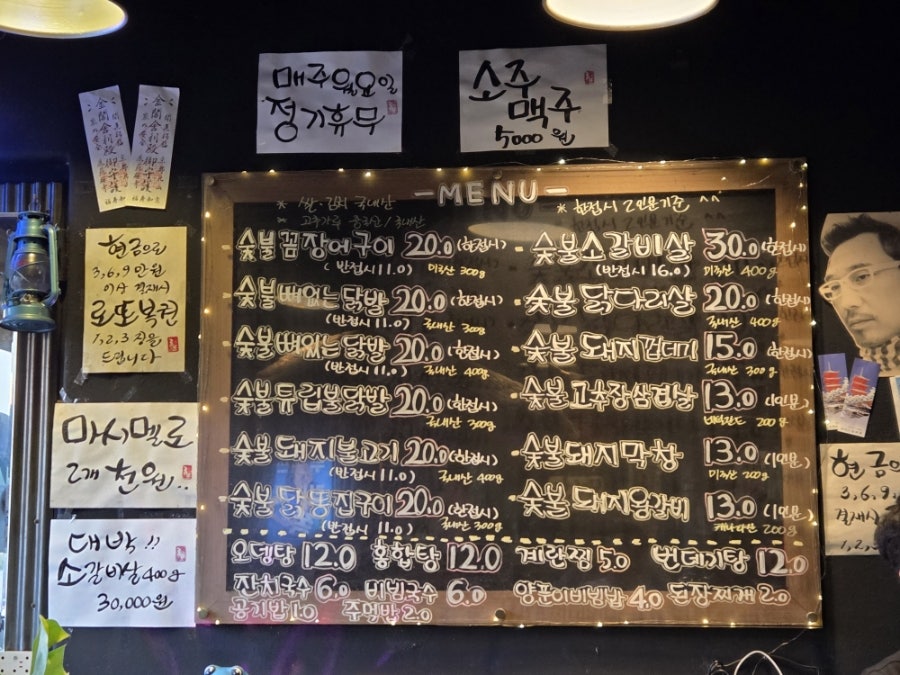 매주 월요일
정기휴무
소주
맥주
5000원
현금으로
3,6,9만원
이상 결재시
로또복권
1,2,3 장을
드립니다
마시멜로
2개 천원..
대박!!
소갈비살 400g
30,000원
- MENU -
* 쌀·김치 국내산
* 고추가루 중국산/국내산
* 한접시 2인용기준 ^^
숯불꼼장어구이 20.0 (한접시)
(반접시 11.0) 미국산 300g
숯불뼈없는닭발 20.0 (한접시)
(반접시 11.0) 국내산 300g
숯불뼈있는닭발 20.0 (한접시)
(반접시 11.0) 국내산 400g
숯불튜립불닭발 20.0 (한접시)
국내산 300g
숯불돼지불고기 20.0 (한접시)
(반접시 11.0) 국내산 400g
숯불닭똥집구이 20.0 (한접시)
(반접시 11.0) 국내산 300g
숯불소갈비살 30.0 (한접시)
(반접시 16.0) 미국산 400g
숯불닭다리살 20.0 (한접시)
국내산 400g
숯불돼지껍데기 15.0 (한접시)
국내산 300g
숯불고추장삼겹살 13.0 (1인분)
200g
숯불돼지막창 13.0 (1인분)
미국산 200g
숯불돼지왕갈비 13.0 (1인분)
캐나다산 200g
오뎅탕 12.0 홍합탕 12.0 계란찜 5.0 번데기탕 12.0
잔치국수 6.0 비빔국수 6.0 양푼이비빔밥 4.0 된장찌개 2.0
공기밥 1.0 주먹밥 2.0
현금으
3,6,9
결재시
1,2,3